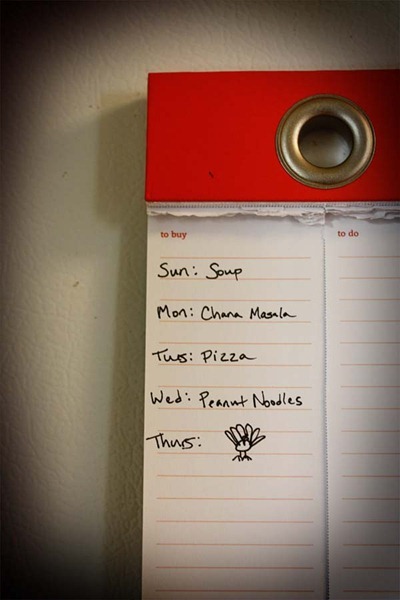 to buy
to do
Sun: Soup
Mon: Chana Masala
Tues: Pizza
Wed: Peanut Noodles
Thurs: